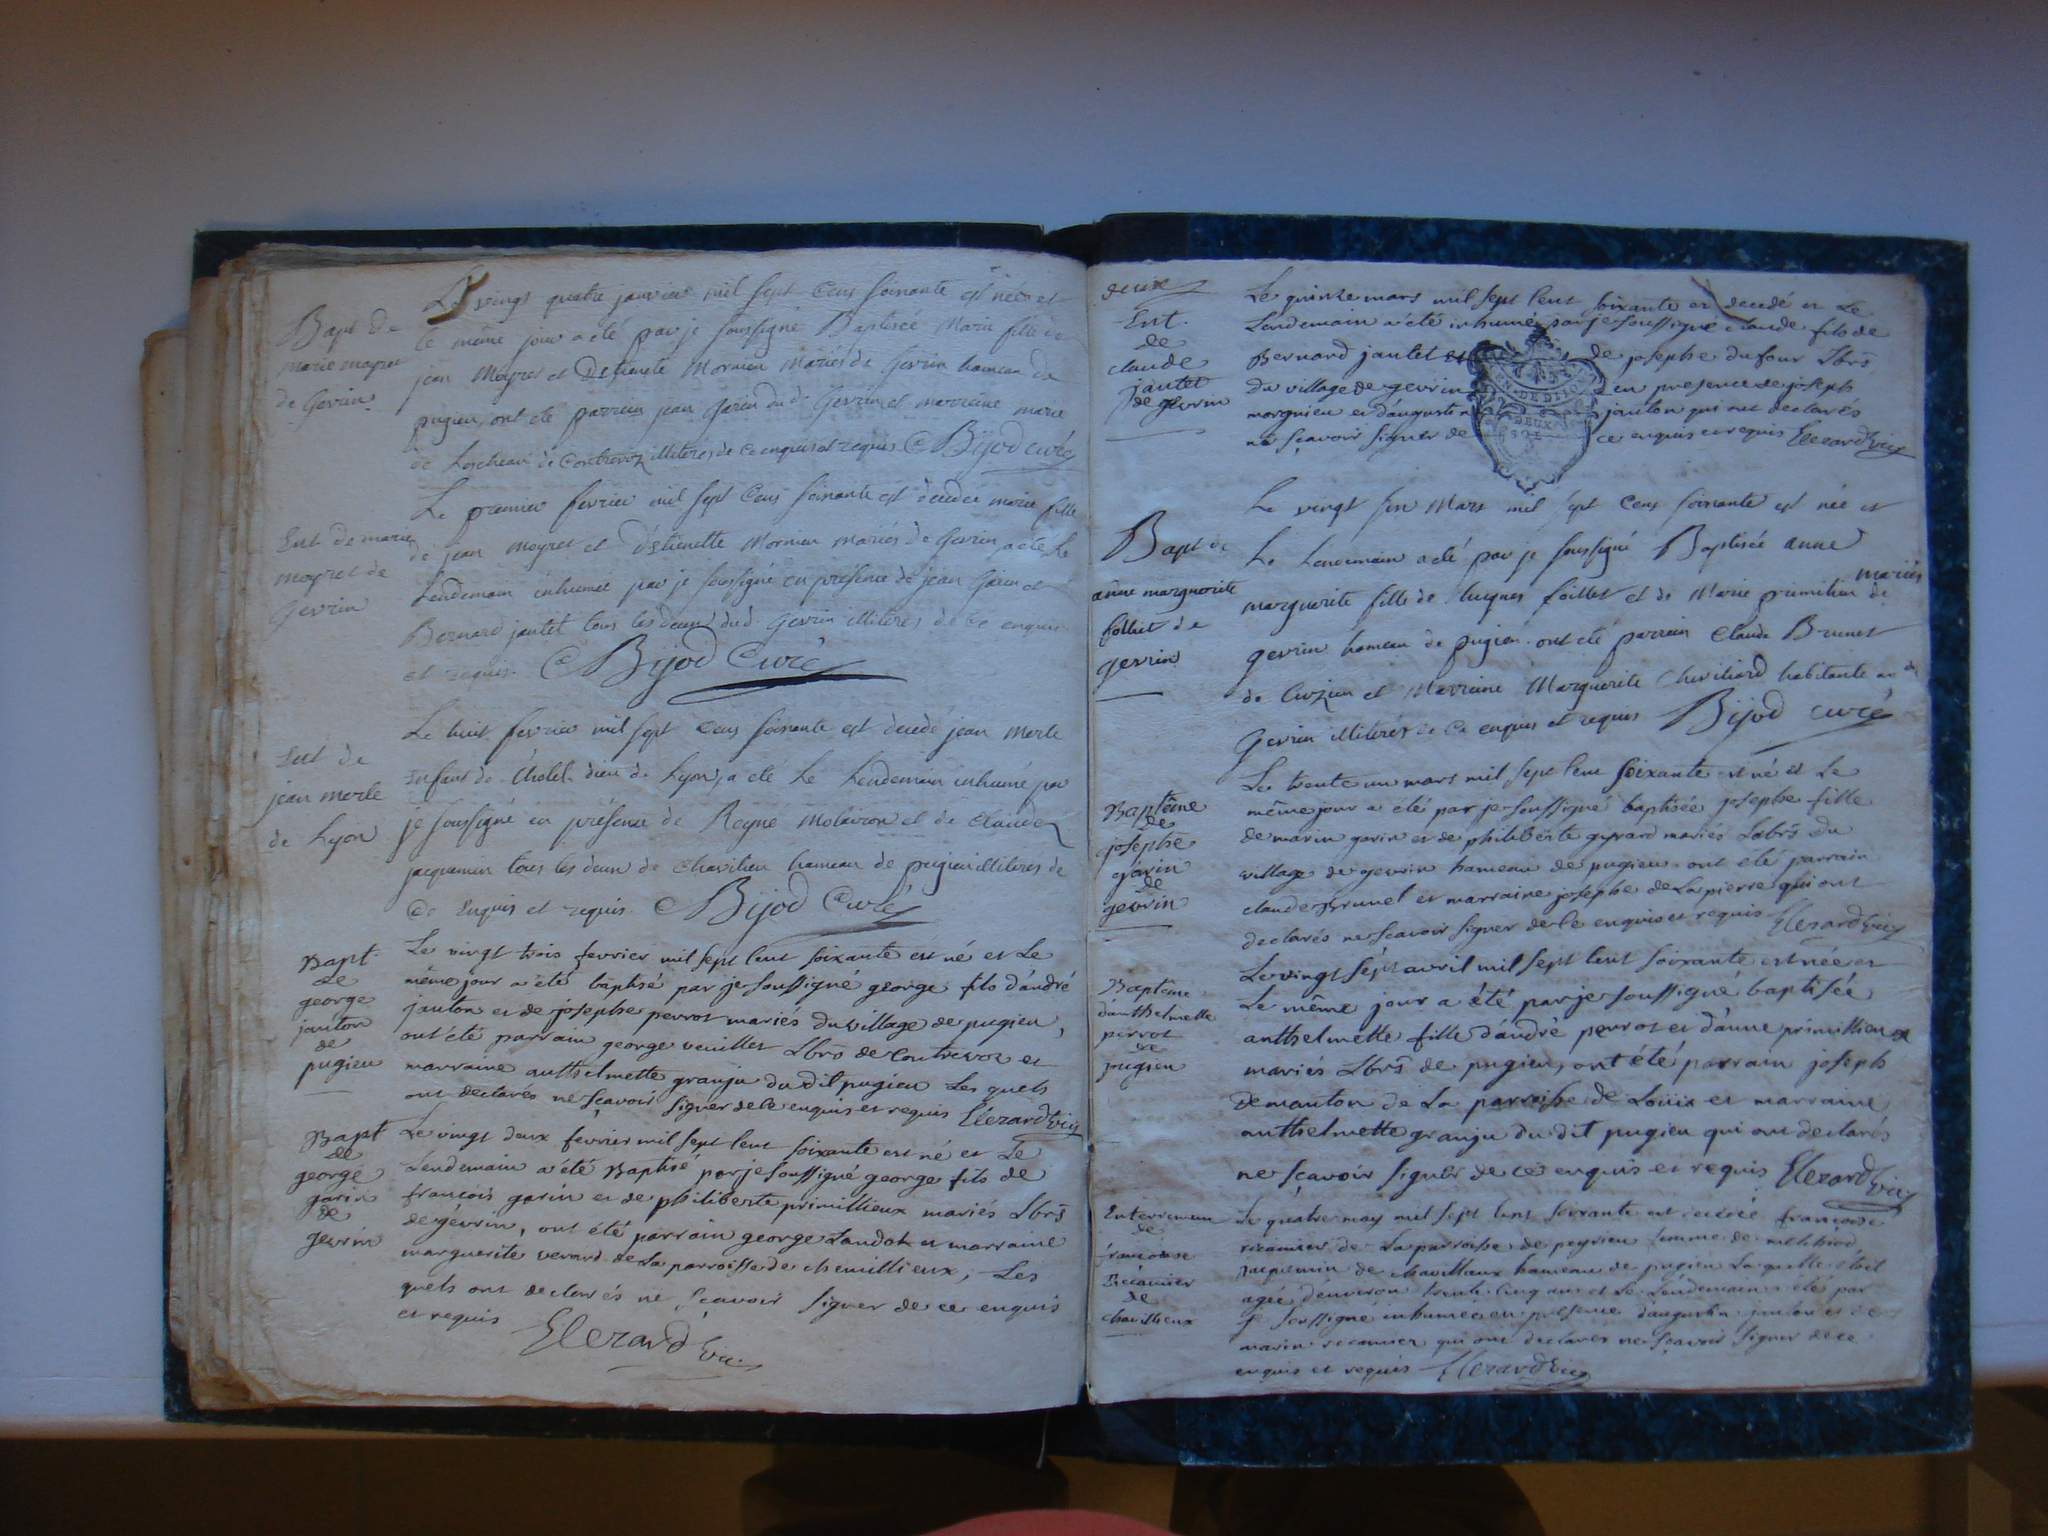 Bapt de
marie meyret
de Gevrin
Le vingt quatre janvier mil sept Cens soixante est née et
le même jour a été par je soussigné Baptisée Marie fille de
jean Meyret et D'Etienette Mornieu Mariés de Gevrin hameau de
pugieu, ont été parrein jean Garin dud. Gevrin et marreine marie
de Contrevoz illiteres de Ce enquis et requis Bijod curé
Ent de marie
meyret de
Gevrin
Le premier fevrier mil sept Cens soixante est decedée marie fille
de jean meyret et d'Etienette Mornieu mariés de Gevrin, a été le
Lendemain inhumée par je soussigné en presence de jean Garin et
Bernard jantet tous les deux dud. Gevrin illiteres de Ce enquis
et requis. Bijod Curé
Ent de
jean merle
de Lyon
Le huit fevrier mil sept Cens soixante est decedé jean merle
Enfant de l'hotel-dieu de Lyon, a été le Lendemain inhumé par
je soussigné en présence de Reyne et de Claude
jacquemin tous les deux de Chavilieu hameau de pugieu illiteres de
Ce Enquis et requis. Bijod Curé
Bapt
de
george
janton
de
pugieu
Le vingt trois fevrier mil sept Cent soixante est né et Le
même jour a été baptisé par je soussigné george fils d'andré
janton et de josephe perrot mariés du village de pugieu,
ont été parrain george veuillet Lbrs de Contrevoz et
marraine anthelmette granju du dit pugieu Les quels
ont declarés ne sçavoir signer de Ce enquis et requis Elezard vic
Bapt
de
george
garin
de
gevrin
Le vingt deux fevrier mil sept Cent soixante est né et Le
Lendemain a été Baptisé par je soussigné george fils de
francois garin et de philiberte primillieux mariés Lbrs
de gevrin, ont été parrain george Landot et marraine
marguerite verard de La parroisse de chemillieux, Les
quels ont declarés ne sçavoir signer de ce enquis
et requis Elezard vic.
deux
Ent.
de
claude
jantet
de gevrin
Le quinze mars mil sept Cent soixante est decedé et Le
Lendemain a été inhumé par je soussigné claude fils de
Bernard jantet et de josephe dufour Lbrs
Du village de gevrin en presence de joseph
morgnieu et d'augustin janton qui ont declarés
ne sçavoir signer de ce enquis et requis Elezard vic
GEN. DE DIJON
DEUX
SOLS
Bapt de
anne marguerite
folliet de
gevrin
Le vingt six Mars mil sept Cens soixante est née et
Le Lendemain a été par je soussigné Baptisée anne
mariés
marguerite fille de Jacques folliet et de Marie primilieu de
gevrin hameau de pugieu. ont été parrain Claude Brunet
de Cuzieu et Marreine Marguerite Chevillard habitante au d.
Gevrin illiteres de Ce enquis et requis Bijod curé
Baptême
de
josephe
garin
de
gevrin
Le trente un mars mil sept Cent soixante est né et Le
même jour a été par je soussigné baptisée josephe fille
de marin garin et de philiberte gyrard mariés Labrs du
village de gevrin hameau de pugieu. ont été parrain
claude Brunet et marraine josephe de La pierre qui ont
declarés ne sçavoir signer de Ce enquis et requis Elezard vic
Baptême
d'anthelmette
perrot
de
pugieu
Le vingt sept avril mil sept Cent soixante est née et
Le même jour a été par je soussigné baptisée
anthelmette fille d'andré perrot et d'anne primillieux
mariés Lbrs de pugieu, ont été parrain joseph
Demanton de La parroisse de Loüix et marraine
anthelmette granju du dit pugieu qui ont declarés
ne sçavoir signer de ce enquis et requis Elezard vic
Enterrement
de
françoise
Recamier
de
chavillieux
Le quatre may mil sept Cent soixante est decedée françoise
recamier de La parroisse de peyrieu femme de melchiod
jacquemin de chavillieux hameau de pugieu La quelle étoit
agée d'environ trente cinq ans et Le Lendemain a été par
je soussigné inhumée en presence d'augustin janton et de
marin recamier qui ont declarés ne sçavoir signer de ce
enquis et requis Elezard vic